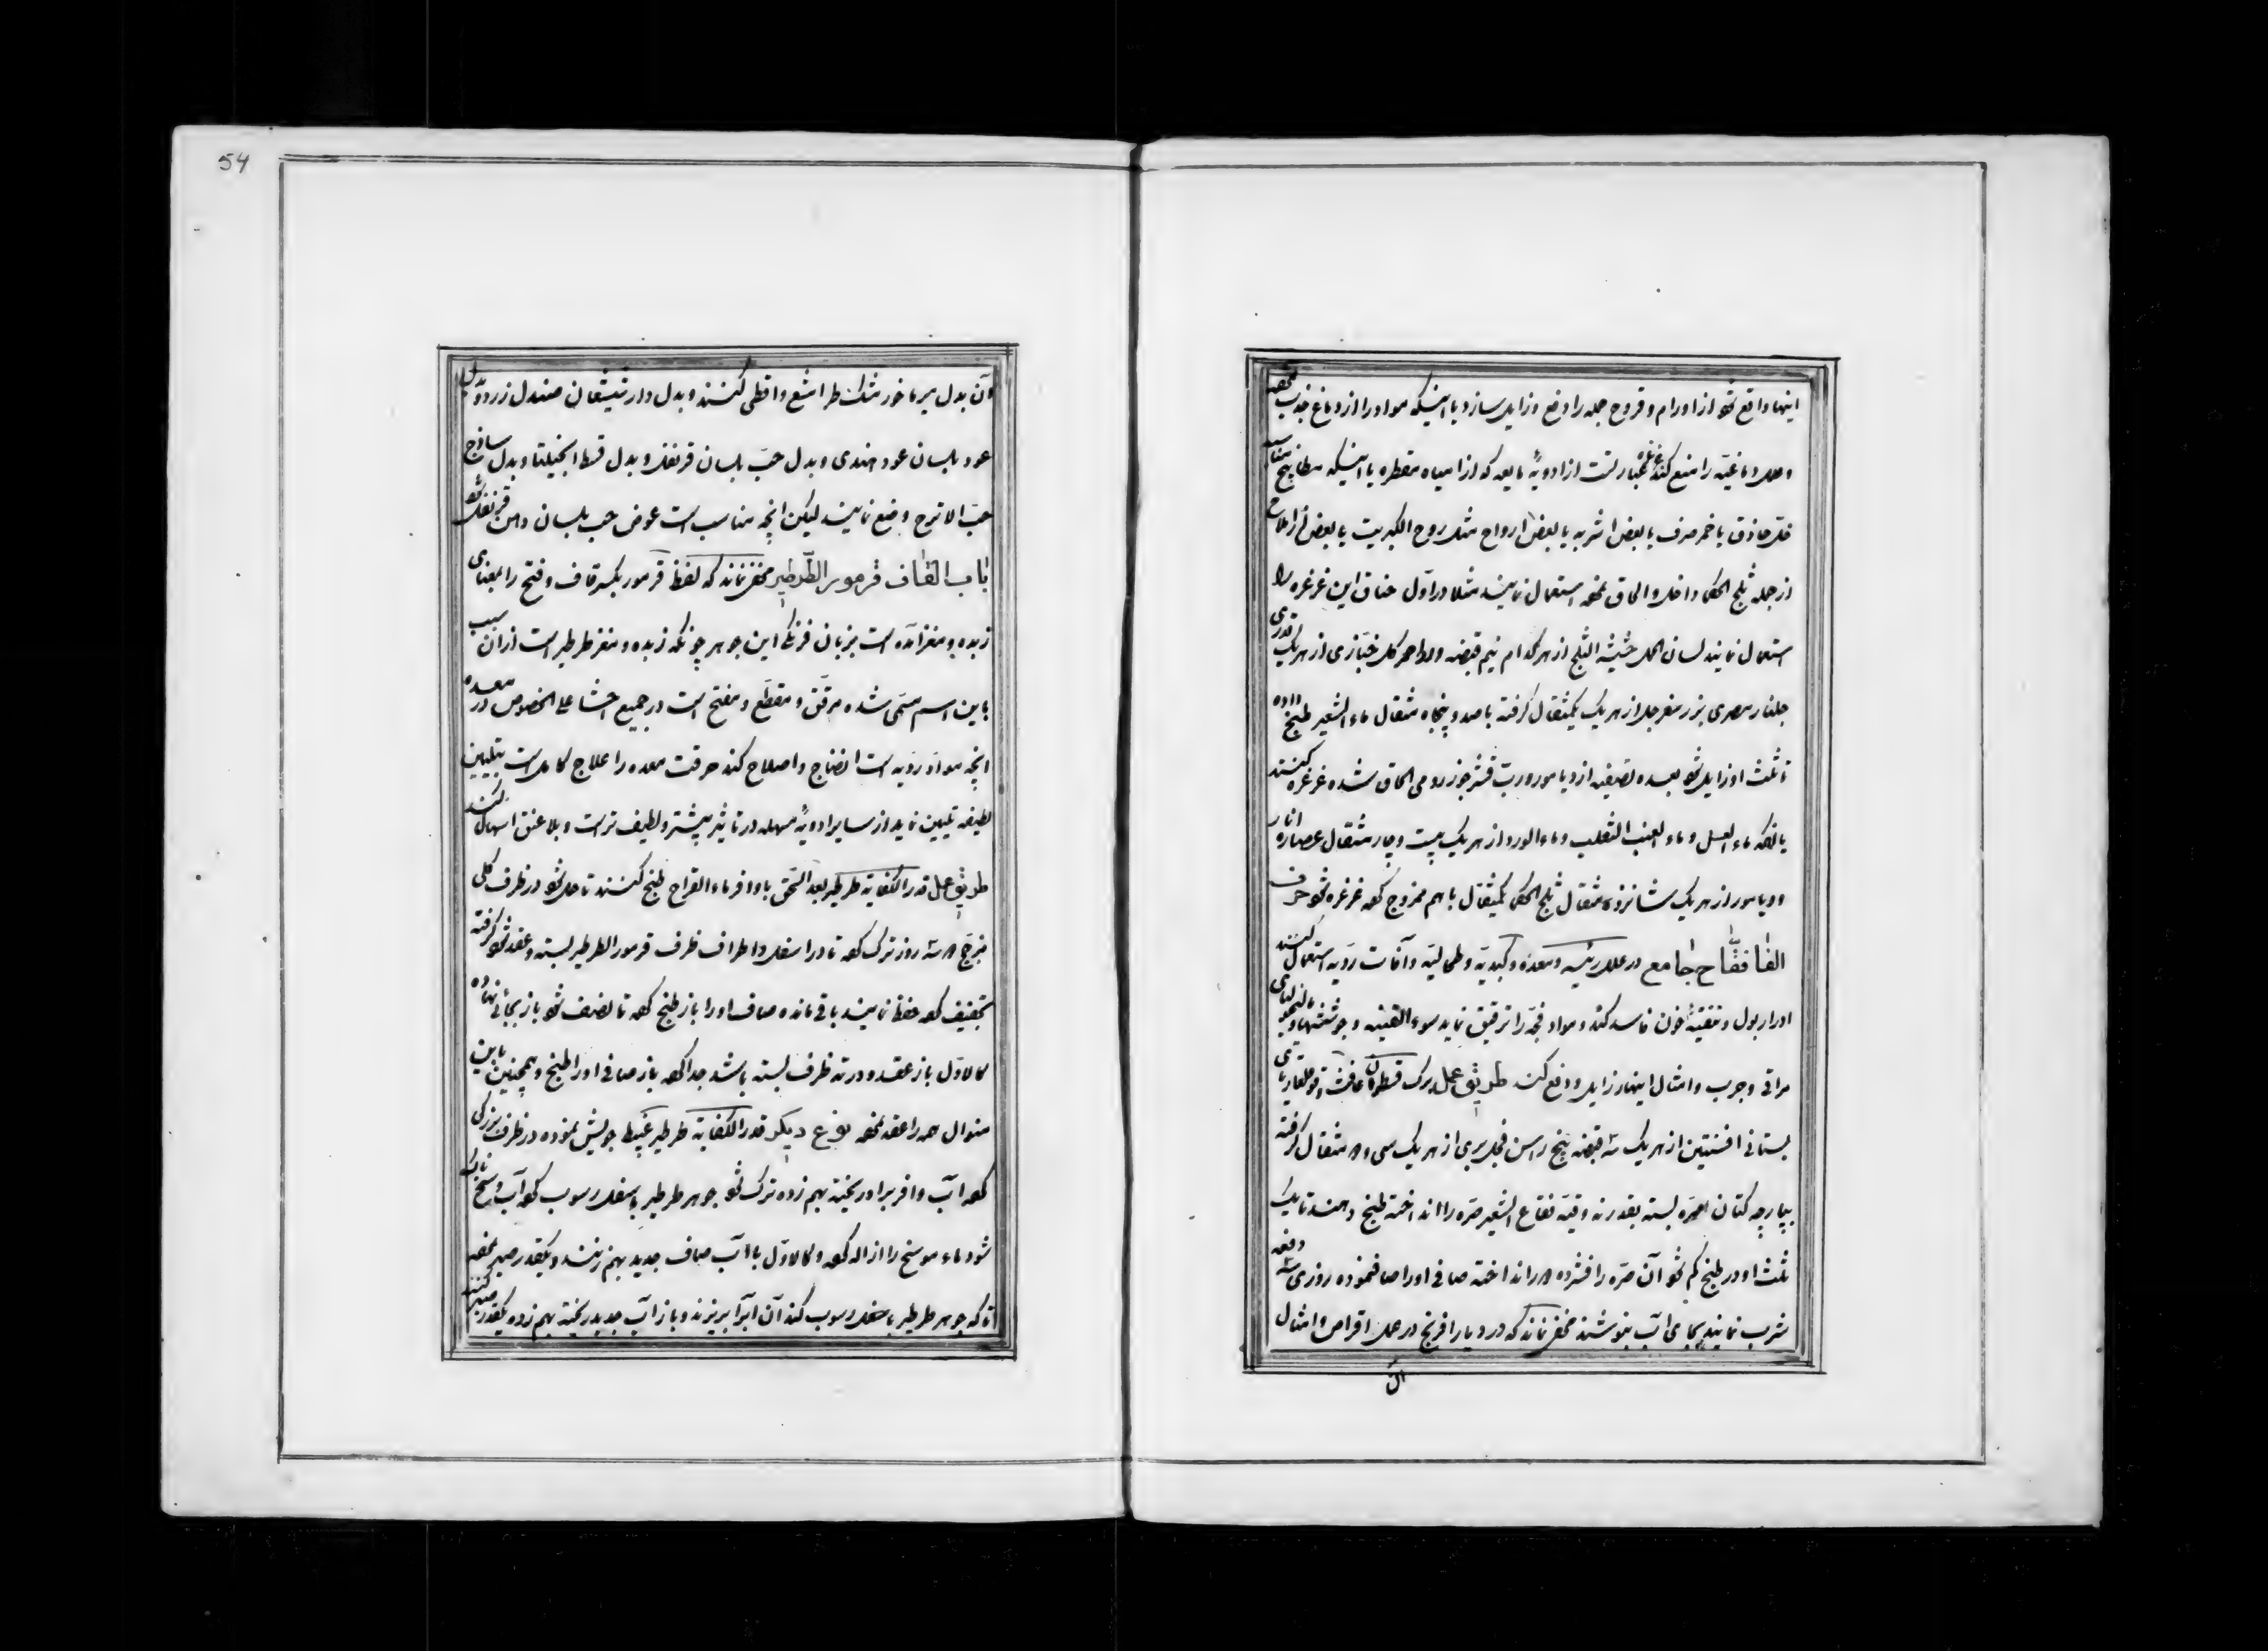 اینها واقع شود از اورام و قروح جمله را دفع و زایل سازد با اینکه مواد را از دماغ جذب
و علل دماغیه را منع کند غرغره عبارتست از ادویهٔ مایعه که از میاه مقطره یا اینکه مطابیخ مناسبه
خل حاذق یا خمر صرف یا بعض اشربه یا بعض ارواح مثل روح الکبریت یا بعض از املاح
از جمله ثلج الحکما داخل و الحاق نموده استعمال نمایند مثلا در اول خناق این غرغره را
استعمال نمایند لسان الحمل حشیشه الثلج از هر کدام نیم قبضه ورد احمر کل خبازی از هر یک قدری
جلنار مصری بزر سفرجل از هر یک یکمثقال گرفته با صد و پنجاه مثقال ماء الشعیر طبخ داده
تا ثلث او زایل شود بعده تصفیه از دیامورو ربّ قشر جوز رومی الحاق شده غرغره کنند
یا آنکه ماء العسل و ماء العنب الثعلب و ماء الورد از هر یک بیست و چار مثقال عصاره انار
و دیامور از هر یک شانزده مثقال ثلج الحکما یکمثقال با هم ممزوج کرده غرغره شود حرف
الفا فقّاح جامع در علل رئیسه و معده و کبدیه و طحالیه و آفات ردیه استعمال کنند
ادرار بول و تنقیهٔ خون فاسد کند و مواد فجّه را ترقیق نماید سوء القنیه و جوششها و مالیخولیای
مراقی و جرب و امثال اینها را زایل و دفع کند طریق عمل برک
بستانی افسنتین از هر یک سه قبضه بیخ راسن فجل بری از هر یک سی و دو مثقال گرفته
بپارچه کتان صرّه بسته بقدر نه وقیّه فقاع الشعیر صرّه را انداخته طبخ دهند تا یک
ثلث او در طبخ کم شود آن صرّه را فشرده دور انداخته صافی او را صاف نموده روزی سه دفعه
شرب نمایند بجای آب بنوشند مخفی نماند که در دیار افرنج در عمل اقراص و امثال
آن
54
آن بدل میرماخور مشک طرامشیع و اقطی کنند و بدل دارشیشعان صندل زرد و بدل
عود بلسان عود هندی و بدل حبّ بلسان قرنفل و بدل قسط انجیلیقا و بدل ساذج
حبّ الاترج وضع نمایند لیکن آنچه مناسب است عوض حب بلسان و دهن قرنفل
باب القاف قرمور الطّرطیر مخفی نماند که لفظ قرمور بکسر قاف و فتح را بمعنای
زبده و مغز آمده است بزبان فرنک این جوهر چونکه زبده و مغز طرطیر است از آن سبب
باین اسم مسمّی شده مرقّق و مقطّع و مفتح است در جمیع احشا علی الخصوص در معده
آنچه مواد ردیه است انضاج و اصلاح کند حرقت معده را علاج کامل است بتلیین
لطیفه تلیین نماید از سایر ادویهٔ مسهله در تاثیر بیشتر و لطیف تر است و بلا عنف اسهال کند
طریق عمل قدر الکفایه طرطیر بعد السّحق با وافر ماء القراح طبخ کنند تا حل شود در ظرف کلی
مزجّج دو سه روز ترک کرده تا در اسفل و اطراف ظرف قرمور الطرطیر بسته و عقد شود گرفته
تجفیف کرده حفظ نمایند باقی مانده صاف او را باز طبخ کرده تا نصف شود باز بجائی نهاده
کالاوّل باز عقد و در ته ظرف بسته باشد جدا کرده باز صافی او را طبخ و همچنین باین
منوال همه را عقد نموده نوع دیکر قدر الکفایه طرطیر غبیط جریش نموده در ظرف بزرکی
کرده آب وافر برو ریخته بهم زده ترک شود جوهر طرطیر باسفل رسوب کرده آب وسخ ناک
شود ماء موسخ را ازاله کرده و کالاوّل با آب صاف جدید بهم زنند و یکقدر صبر نموده
تا که جوهر طرطیر باسفل رسوب کند آن آبرا بریزند و باز آب جدید ریخته بهم زده یکقدر صبر کنند